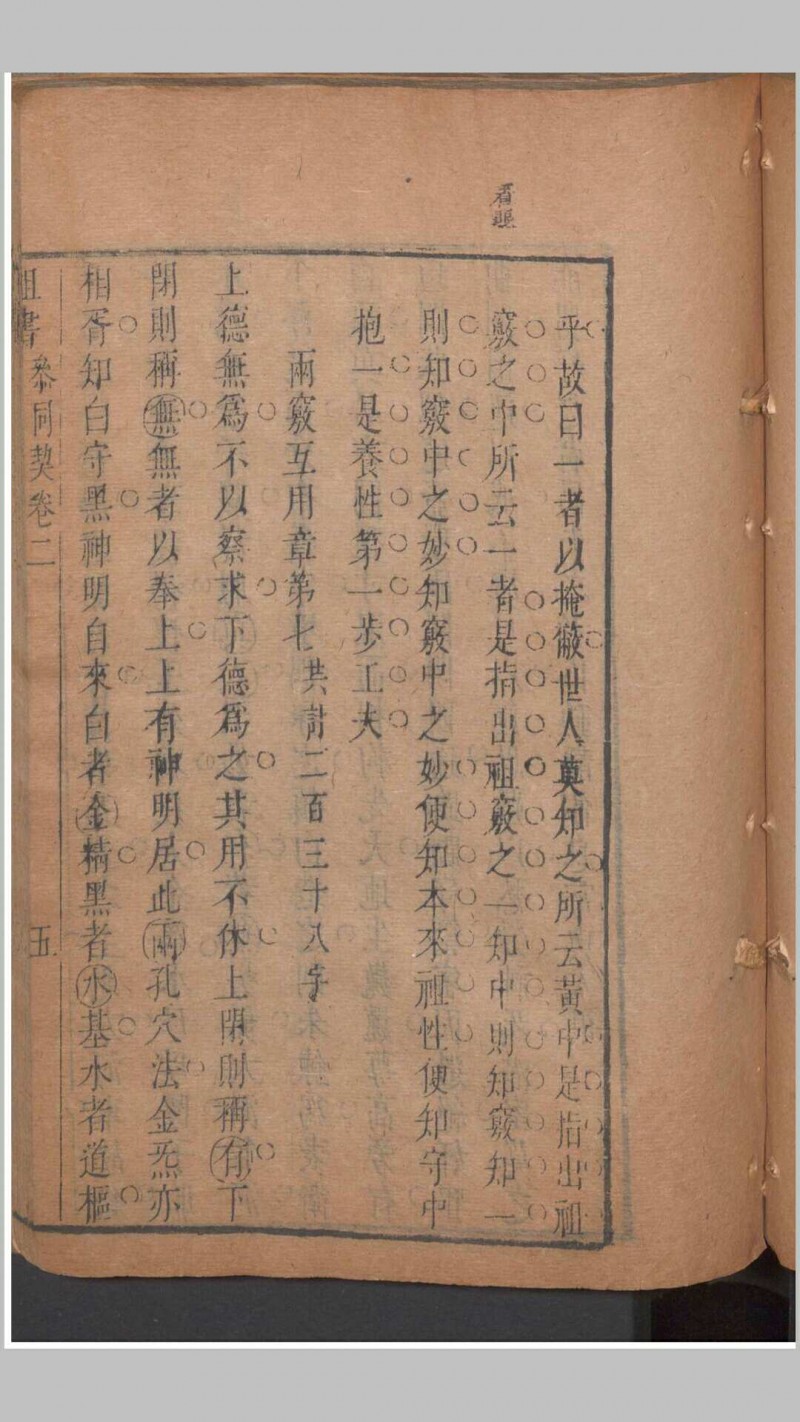 看眼
乎故曰一者以掩蔽世人莫知之所云黃中是指出祖
竅之中所云一者是指出祖竅之一知中則知竅知一
則知竅中之妙知竅中之妙便知本來祖性便知守中
抱一是養性第一步工夫
兩竅互用章第七共計二百三十八字
上德無爲不以察求下德爲之其用不休上閉則稱有下
閉則稱無無者以奉上上有神明居此兩孔穴法金炁亦
相胥知白守黑神明自來白者金精黑者水基水者道樞
祖書 叅同契卷二 五